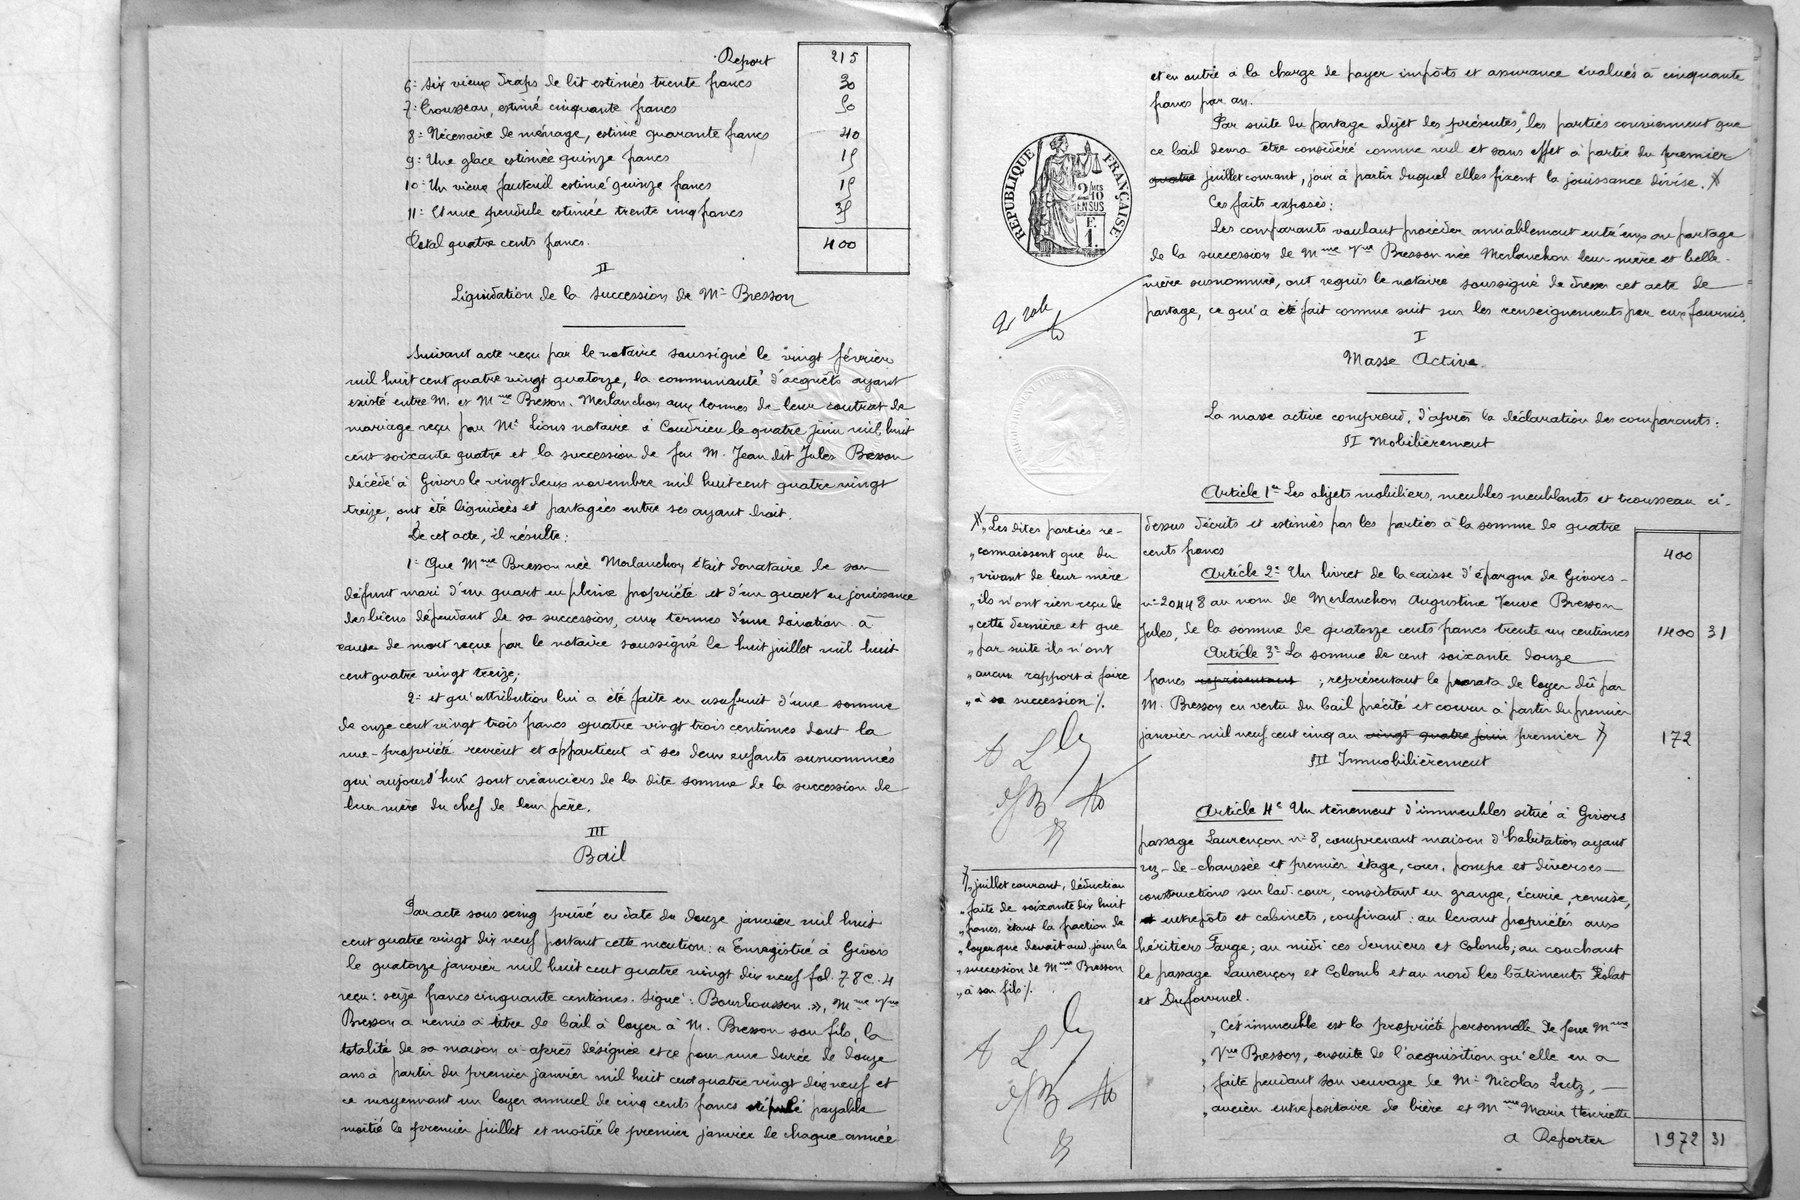 Report 215
6° Six vieux draps de lit estimés trente francs 30
7° Trousseau, estimé cinquante francs 50
8° Nécessaire de ménage, estimé quarante francs 40
9° Une glace estimée quinze francs 15
10° Un vieux fauteuil estimé quinze francs 15
11° Et une pendule estimée trente cinq francs 35
Total quatre cents francs. 400
II
Liquidation de la succession de Mr Bresson
Suivant acte reçu par le notaire soussigné le vingt février
mil huit cent quatre vingt quatorze, la communauté d'acquêts ayant
existé entre M. et Mme Bresson-Merlanchon aux termes de leur contrat de
mariage reçu par Me Lions notaire à Condrieu le quatre juin mil huit
cent soixante quatre et la succession de feu M. Jean dit Jules Bresson
décédé à Givors le vingt deux novembre mil huit cent quatre vingt
treize, ont été liquidées et partagées entre ses ayant droit.
De cet acte, il résulte:
1° Que Mme Bresson née Merlanchon était donataire de son
défunt mari d'un quart en pleine propriété et d'un quart en jouissance
des biens dépendant de sa succession, aux termes d'une donation à
cause de mort reçue par le notaire soussigné le huit juillet mil huit
cent quatre vingt treize;
2° et qu'attribution lui a été faite en usufruit d'une somme
de onze cent vingt trois francs quatre vingt trois centimes dont la
nue-propriété revient et appartient à ses deux enfants susnommés
qui aujourd'hui sont créanciers de la dite somme de la succession de
leur mère du chef de leur père.
III
Bail
Par acte sous seing privé en date du douze janvier mil huit
cent quatre vingt dix neuf portant cette mention: « Enregistré à Givors
le quatorze janvier mil huit cent quatre vingt dix neuf fol. 78 c. 4
reçu: seize francs cinquante centimes. Signé: Bourbousson », Mme Vve
Bresson a remis à titre de bail à loyer à M. Bresson son fils, la
totalité de sa maison ci après désignée et ce pour une durée de douze
ans à partir du premier janvier mil huit cent quatre vingt dix neuf et
ce moyennant un loyer annuel de cinq cents francs stipulé payable
moitié le premier juillet et moitié le premier janvier de chaque année
et en outre à la charge de payer impôts et assurance évalués à cinquante
francs par an.
Par suite du partage objet des présentes, les parties conviennent que
ce bail devra être considéré comme nul et sans effet à partir du premier
quatre juillet courant, jour à partir duquel elles fixent la jouissance divise.
Ces faits exposés:
Les comparants voulant procéder amiablement entr'eux au partage
de la succession de Mme Vve Bresson née Merlanchon leur mère et belle-
mère susnommée, ont requis le notaire soussigné de dresser cet acte de
partage, ce qui a été fait comme suit sur les renseignements par eux fournis.
RÉPUBLIQUE FRANÇAISE
2/10 EN SUS
F.
1.
2e role
I
Masse Active
La masse active comprend, d'après la déclaration des comparants:
§I Mobilièrement
Article 1er Les objets mobiliers, meubles meublants et trousseau ci-
dessus décrits et estimés par les parties à la somme de quatre
cents francs 400
Article 2° Un livret de la caisse d'épargne de Givors
n° 20448 au nom de Merlanchon Augustine Veuve Bresson
Jules, de la somme de quatorze cents francs trente un centimes 1400 31
Article 3° La somme de cent soixante douze
francs représentant ; représentant le prorata de loyer dû par
M. Bresson en vertu du bail précité et couru à partir du premier
janvier mil neuf cent cinq au vingt quatre juin premier 172
§II Immobilièrement
Article 4e Un tènement d'immeubles situé à Givors
passage Laurençon n° 8, comprenant maison d'habitation ayant
rez-de-chaussée et premier étage, cour, pompe et diverses
constructions sur lad. cour, consistant en grange, écurie, remise,
et entrepôts et cabinets, confinant: au levant propriétés aux
héritiers Farge; au midi ces derniers et Colomb; au couchant
le passage Laurençon et Colomb et au nord les bâtiments
et Dufournel.
„ Cet immeuble est la propriété personnelle de feue Mme
„ Vve Bresson, ensuite de l'acquisition qu'elle en a
„ faite pendant son veuvage de Mr Nicolas Lutz,
„ ancien entrepositaire de bière et Mme Marie Henriette
A Reporter 1972 31
„ Les dites parties re-
„ connaissent que du
„ vivant de leur mère
„ ils n'ont rien reçu de
„ cette dernière et que
„ par suite ils n'ont
„ aucun rapport à faire
„ à sa succession /.
„ juillet courant, déduction
„ faite de soixante dix huit
„ francs, étant la fraction de
„ loyer que devait aud. jour la
„ succession de Mme Bresson
„ à son fils /.